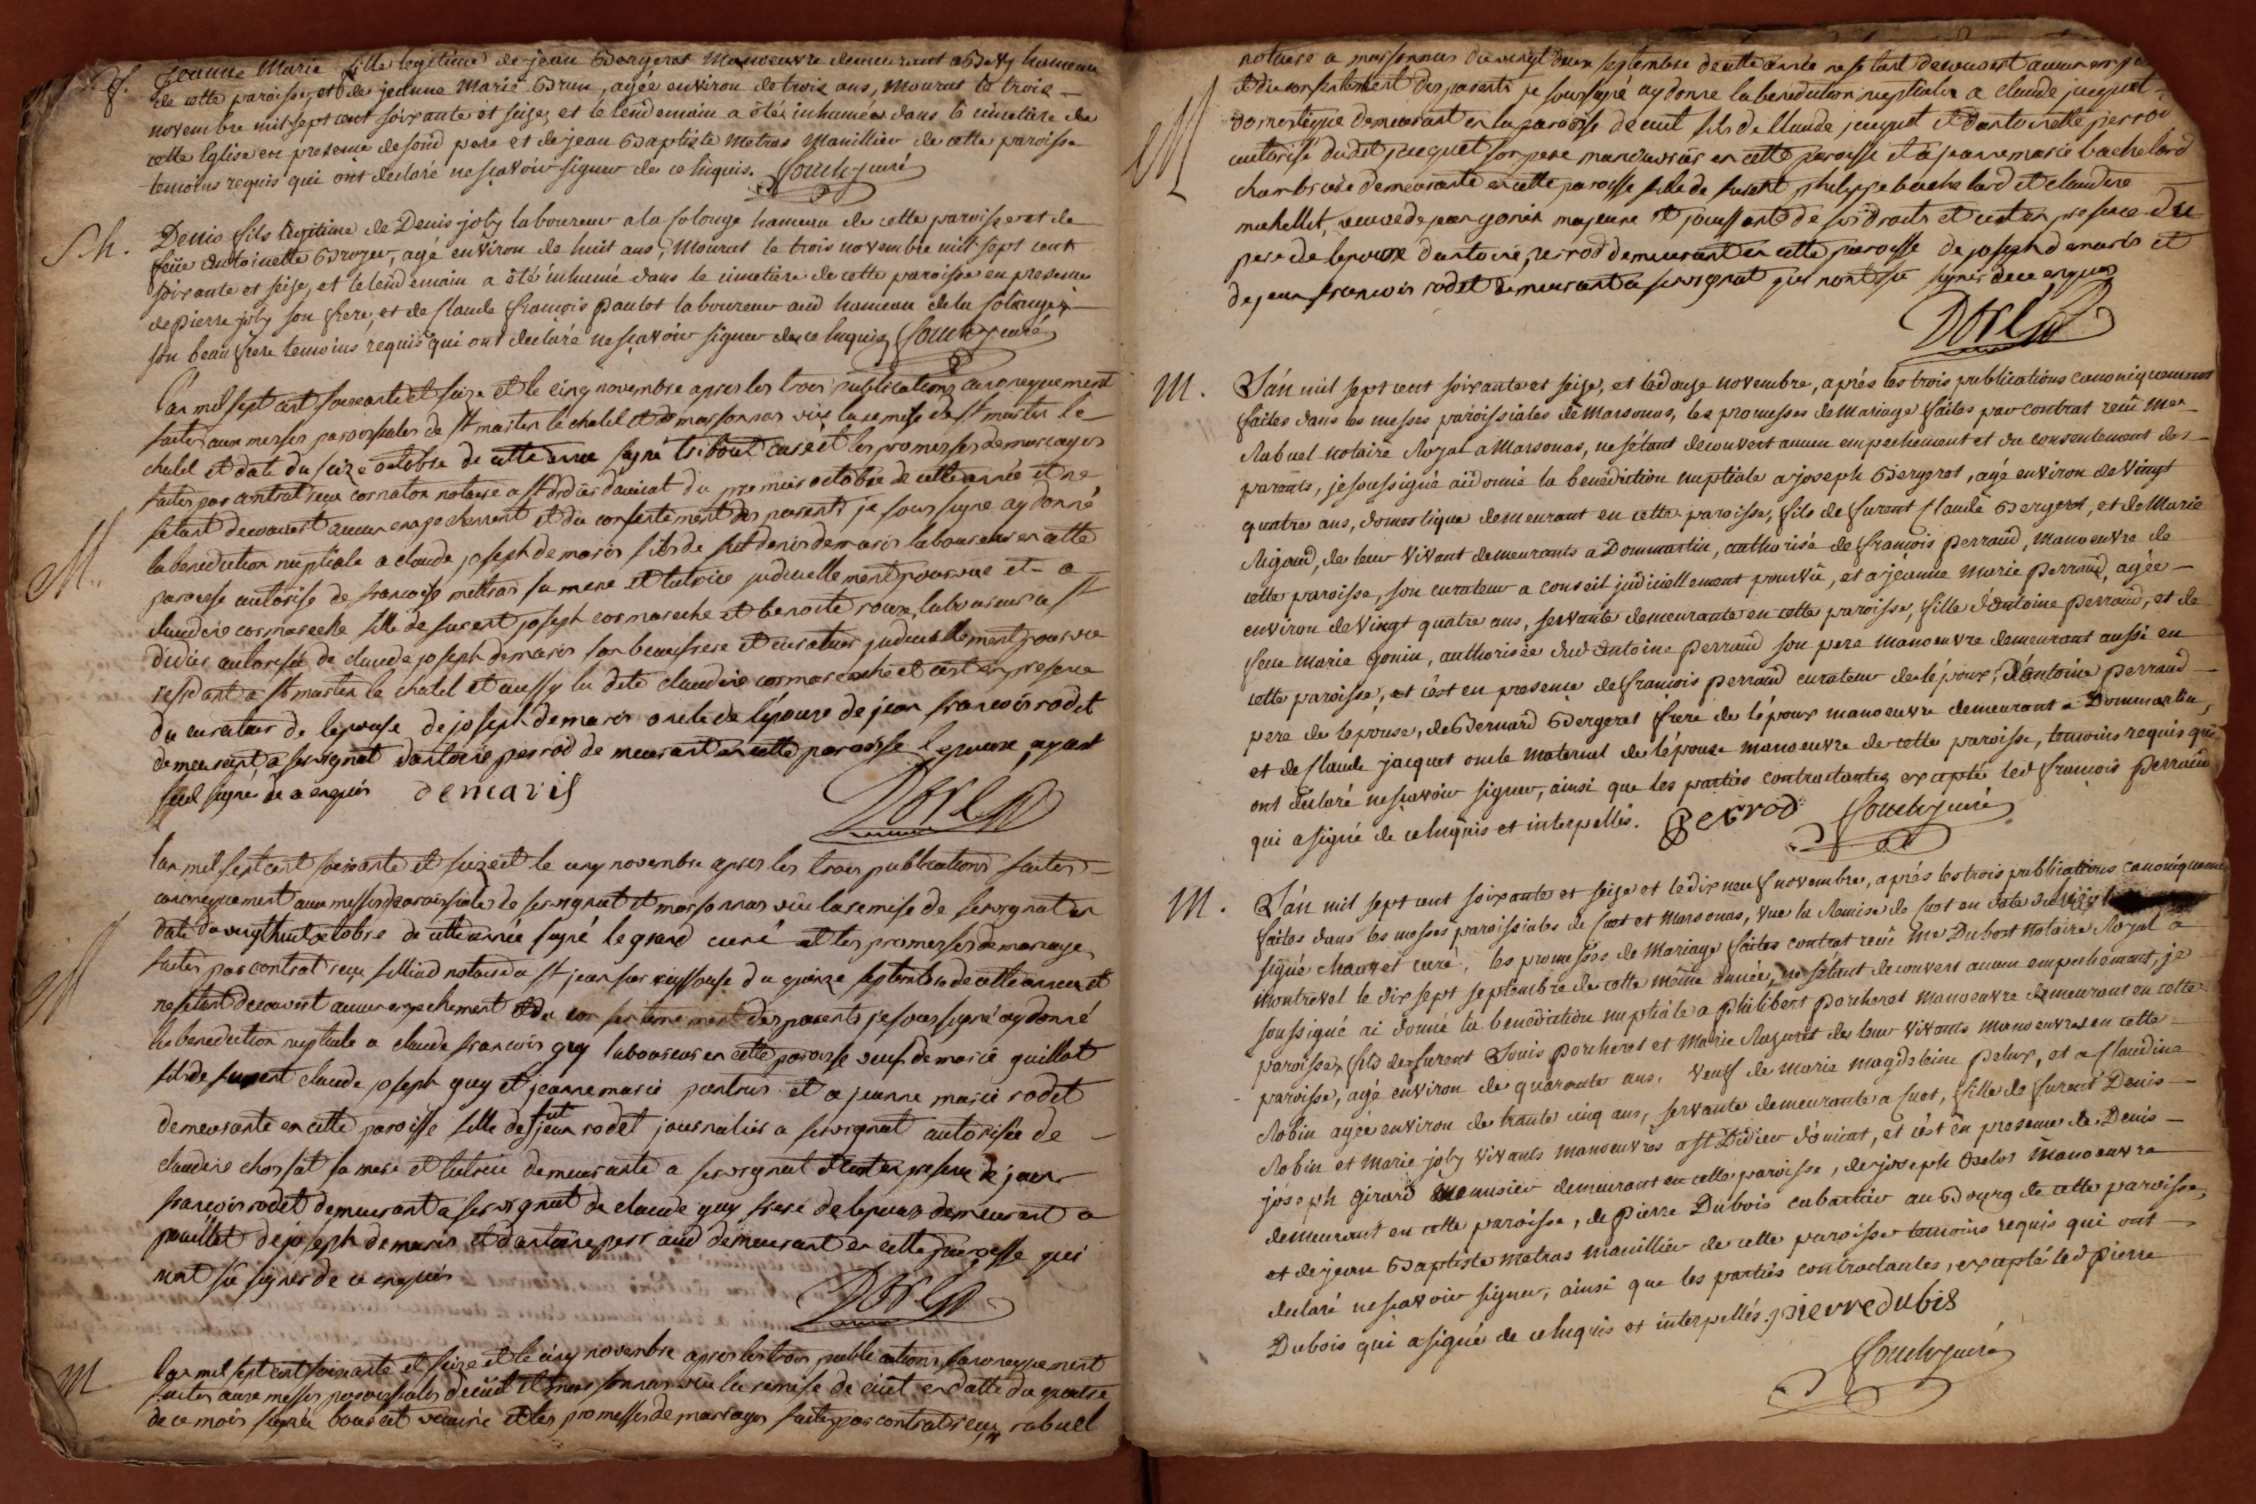 f. Jeanne Marie fille legitime de jean Bergerot Manoeuvre demeurant a hameau
de cette paroisse, et de jeanne Marie Brun, agée environ de trois ans, Mourut le trois
novembre mil sept cent soixante et seize, et le lendemain a été inhumée dans le cimetiere de
cette Eglise en presence desond pere et de jean Baptiste Metras Manillier de cette paroisse
temoins requis qui ont declaré ne sçavoir signer de ce Enquis. curé
S.h. Denis fils legitime de Denis joly laboureur a la solonge hameau de cette paroisse et de
feüe Antoinette Broyer, agé environ de huit ans, Mourut le trois novembre mil sept cent
soixante et seise, et le lendemain a été inhumé dans le cimetiere de cette paroisse en presence
de Pierre joly son frere, et de Claude françois Paulot laboureur aud hameau de la solonge
son beau frere temoins requis qui ont declaré ne sçavoir signer de ce Enquis curé
L'an mil sept cent soixante et seize et le cinq novembre apres les trois publications canoniquement
faites aux messes paroissiales de St martin le chatel et de marsonnas vüe la remise de St martin le
chatel et date du seize octobre de cette année signé tribout curé et les promesses de mariages
faites par contrat reçu cornaton notaire a St didier daussiat du premier octobre de cette année et ne
setant decouvert aucun empechement et du consentement des parents je soussigné ay donné
M. la benediction nuptiale a claude joseph demaris fils de fut denis demaris laboureur en cette
paroisse autorisé de françoise mettras sa mere et tutrice judiciellement pourvue et a
claudine cormareche fille de furent joseph cormareche et benoite roux laboureur a St
didier autorisée de claude joseph demaris son beau frere et curateur judiciellement pourvu
residant a St martin le chatel et aussy la dite claudine cormareche et cest en presence
du curateur de lepouse de joseph demaris oncle de lepoux de jean françois rodet
demeurant a servignat dantoine perrod demeurant en cette paroisse lepoux ayant
seul signé de ce enquis demaris
lan mil sept cent soixante et seize et le cinq novembre apres les trois publications faites
canoniquement aux messes paroissiales de servignat et marsonnas vüe la remise de servignat en
date du vingt huit octobre de cette année signé le grand curé et les promesses de mariage
M faites par contrat reçu filliod notaire a St jean sur reyssouse du quinze septembre de cette année et
ne setant decouvert aucun empechement et du consentement des parents je soussigné ay donné
la benediction nuptiale a claude françois guy laboureur en cette paroisse veuf de marie guillot
fils de furent claude joseph guy et jeanne marie et a jeanne marie rodet
demeurante en cette paroisse fille de fut jean rodet journalier a servignat autorisée de
claudine chossat sa mere et tutrice demeurante a servignat et cest en presence de jean
françois rodet demeurant a servignat de claude guy frere de lepoux demeurant a
de joseph demaris et dantoine perraud demeurant en cette paroisse qui
nont sü signer de ce enquis
M lan mil sept cent soixante et seize et le cinq novembre apres les trois publications canoniquement
faites aux messes paroissiales de cüet et marsonnas vüe la remise de cüet en datte du quatre
de ce mois signée vicaire et les promesses de mariages faites par contrat reçu rabuel
notaire a marsonnas du vingt deux septembre de cette année ne setant decouvert aucun
M et du consentement des parents je soussigné ay donné la benediction nuptiale a claude jacquet
domestique demeurant en la paroisse de cuet fils de Claude jacquet et dantoinette perrod
autorisé dudit jacquet son pere manoeuvrier en cette paroisse et a jeanne marie bachelard
chambriere demeurante en cette paroisse fille de furent philippe bachelard et claudine
michellet, veuve de jean gonin majeure et jouissante de ses droits et cest en presence du
pere de lepoux dantoine perrod demeurant en cette paroisse de joseph demaris et
de jean françois rodet demeurant a servignat qui nont sü signer de ce enquis
M. L'an mil sept cent soixante et seise, et le douze novembre, aprés les trois publications canoniquement
faites dans les messes paroissiales de Marsonas, les promesses de Mariage faites par contrat reçû Me
Rabuel notaire Royal a Marsonas, ne s'étant decouvert aucun empechement et du consentement des
parents, je soussigné ai donné la benediction nuptiale a joseph Bergerot, agé environ de vingt
quatre ans, domestique demeurant en cette paroisse, fils de furent Claude Bergerot, et de Marie
Rigaud, de leur vivant demeurants a Dommartin, authorisé de françois Perraud, Manoeuvre de
cette paroisse, son curateur a conseil judiciellement pourvû, et a jeanne Marie Perraud, agée
environ de vingt quatre ans, servante demeurante en cette paroisse, fille d'Antoine Perraud, et de
feue Marie Gonin, authorisée dud Antoine Perraud son pere manoeuvre demeurant aussi en
cette paroisse, et c'est en presence de françois Perraud curateur de l'époux, d'Antoine Perraud
pere de lepouse, de Bernard Bergerot frere de l'époux manoeuvre demeurant a Dommartin,
et de Claude jacquet oncle maternel de l'épouse manoeuvre de cette paroisse, temoins requis qui
ont declaré ne sçavoir signer, ainsi que les parties contractantes excepté led françois Perraud
qui a signé de ce Enquis et interpellés. Perrod curé
M. L'an mil sept cent soixante et seise et le dix neuf novembre, aprés les trois publications canoniquement
faites dans les messes paroissiales de Cuet et Marsonas, vue la Remise de Cuet en date du
signé curé, les promesses de Mariage faites contrat reçû Me Dubost Notaire Royal a
Montrevel le dix sept septembre de cette même année, ne s'étant decouvert aucun empechement, je
soussigné ai donné la benediction nuptiale a Philibert Porcherot manoeuvre demeurant en cette
paroisse, fils de furent Louis Porcherot et Marie de leur vivants manoeuvres en cette
paroisse, agé environ de quarante ans, veuf de Marie Magdeleine Pelux, et a Claudine
Robin agée environ de trente cinq ans, servante demeurante a Cuet, fille de furent Denis
Robin et Marie joly vivants manoeuvres a St Didier d'Ausiat, et c'est en presence de Denis
joseph Girard Menusier demeurant en cette paroisse, de joseph Manoeuvre
demeurant en cette paroisse, de Pierre Dubois cabartier au Bourg de cette paroisse,
et de jean Baptiste Metras Manillier de cette paroisse temoins requis qui ont
declaré ne sçavoir signer, ainsi que les parties contractantes, excepté led Pierre
Dubois qui a signé de ce Enquis et interpellés. pierre dubis
curé